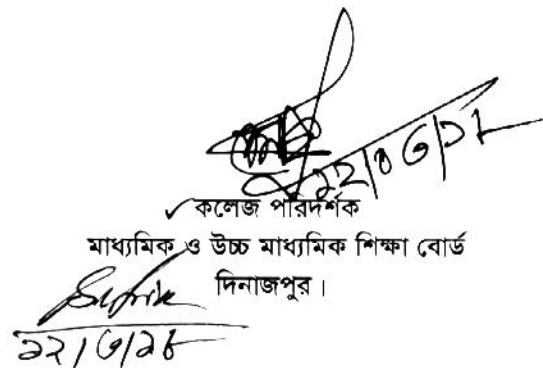 ১২/০৩/১৮
কলেজ পরিদর্শক
মাধ্যমিক ও উচ্চ মাধ্যমিক শিক্ষা বোর্ড
দিনাজপুর।
১২/৩/১৮